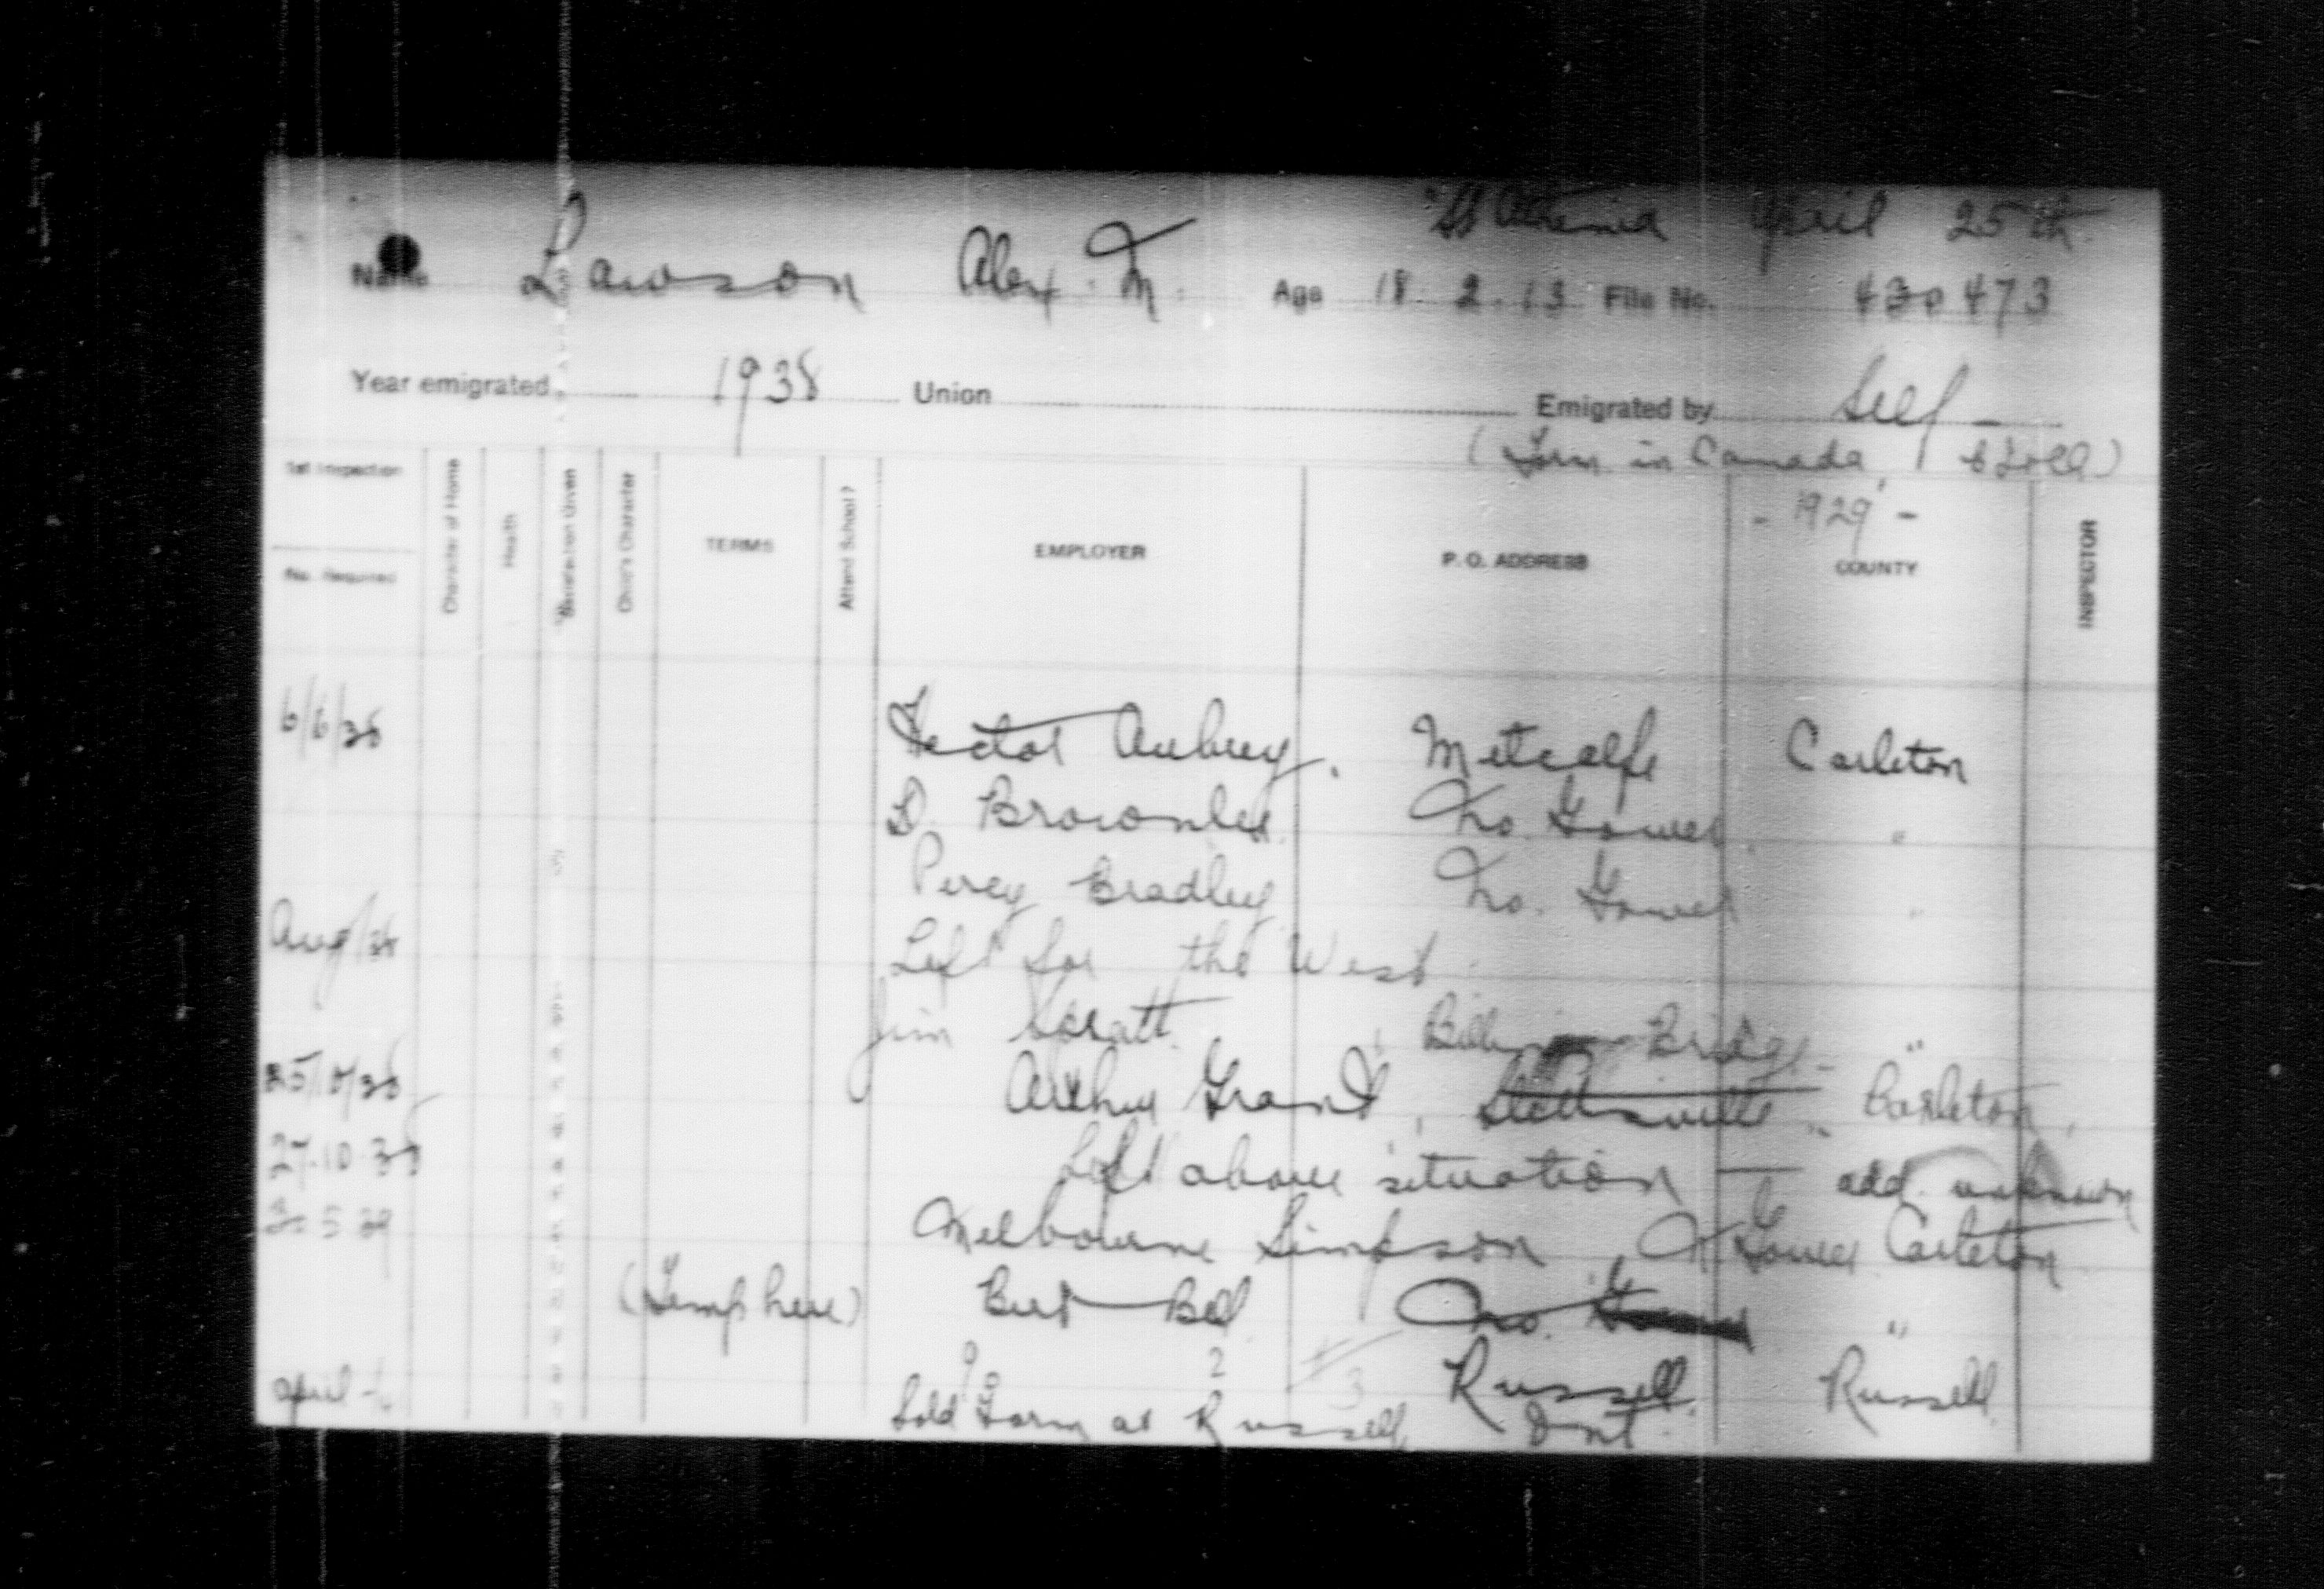 SS Athenia April 25th
Name Lawson Alex. M. Age 18. 2. 13 File No. 430473
Year emigrated 1938 Union Emigrated by Self -
(Form in Canada
- 1929 -
1st Inspection
No. Required
Character of Home
Health
Satisfaction Given
Child's Character
TERMS
Attend School?
EMPLOYER
P. O. ADDRESS
COUNTY
INSPECTOR
6/6/38 Hector Aubrey. Metcalfe Carleton
D. Brownlee No. Gower "
Percy Bradley No. Gower "
Aug/38 Left for the West.
Jim Spratt. Billings Bridge "
25/10/38 Arthur Grant, Stittsville " Carleton,
27.10.38 Left above situation — add. unknown
Melbourne Simpson, N Gower Carleton
(Temp here) Bert Bell No. Gower "
Russell. Russell.
April Sold Farm at Russell, Ont.